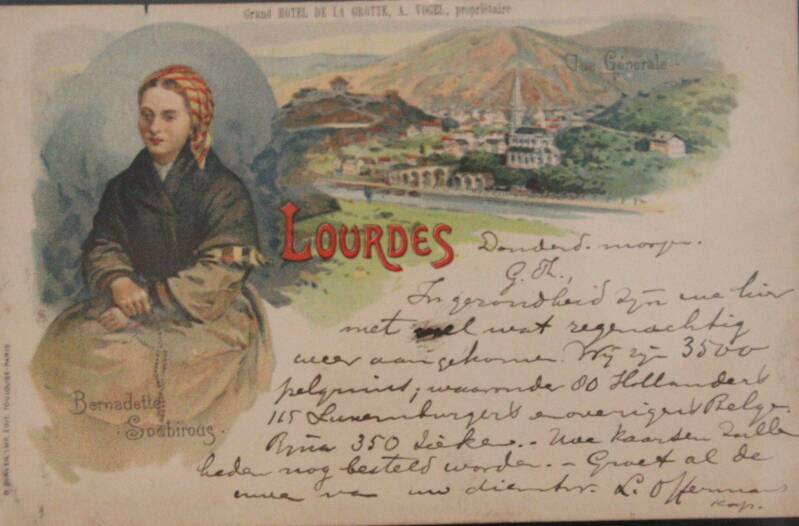 Grand HOTEL DE LA GROTTE, A. VOGEL, propriétaire
Vue Générale
LOURDES
Bernadette
Soubirous
TOULOUSE-PARIS
Donderd. morge.
G. Th.,
In gezondheid zijn we hier
met wel wat regenachtig
weer aangekomen. Wij zijn 3500
pelgrims, waaronder 80 Hollanders
115 Luxemburgers en overigen Belge.
Bijna 350 zieken. - Uwe kaarten zulle
heden nog besteld worden. - Groet al de
uwe van uw dienstw. L. Offermans
Kap.